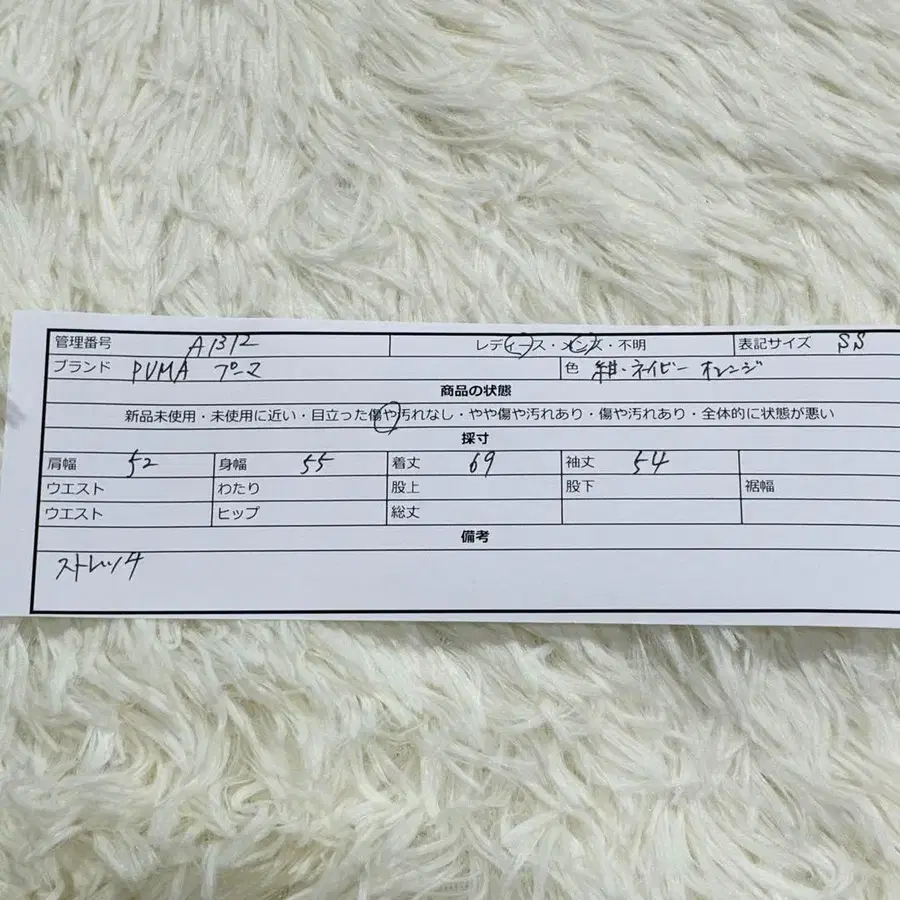 管理番号 A1312 レディース・メンズ・不明 表記サイズ SS
ブランド PUMA プーマ 色 紺・ネイビー オレンジ
商品の状態
新品未使用・未使用に近い・目立った傷や汚れなし・やや傷や汚れあり・傷や汚れあり・全体的に状態が悪い
採寸
肩幅 52 身幅 55 着丈 69 袖丈 54
ウエスト わたり 股上 股下 裾幅
ウエスト ヒップ 総丈
備考
ストレッチ